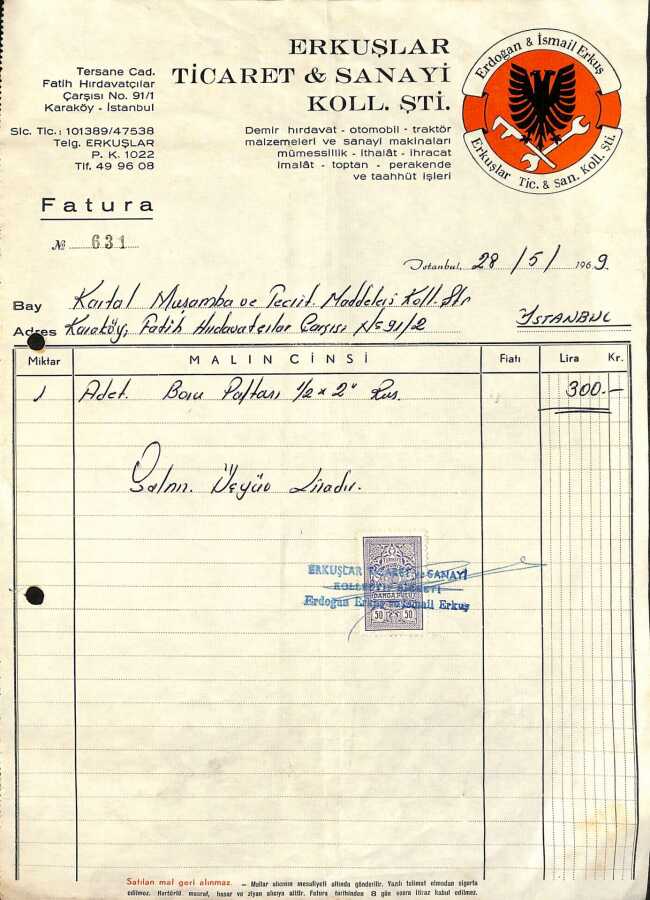 ERKUŞLAR
TİCARET & SANAYİ
KOLL. ŞTİ.
Tersane Cad.
Fatih Hırdavatçılar
Çarşısı No. 91/1
Karaköy - İstanbul
Sic. Tic.: 101389/47538
Telg. ERKUŞLAR
P. K. 1022
Tlf. 49 96 08
Demir hırdavat - otomobil - traktör
malzemeleri ve sanayi makinaları
mümessillik - ithalât - ihracat
imalât - toptan - perakende
ve taahhüt işleri
Erdoğan & İsmail Erkuş
Erkuşlar Tic. & San. Koll. Şti.
Fatura
№ 631
İstanbul, 28/5/1969
Bay Kartal Muşamba ve Tecrit Maddeleri Koll. Şti
Adres Karaköy, Fatih Hırdavatçılar Çarşısı No 91/2 İSTANBUL
Miktar MALIN CİNSİ Fiatı Lira Kr.
1 Adet. Boru Paftası 1/2 x 2" Rus. 300.-
Yalnız Üçyüz Liradır.
ERKUŞLAR TİCARET ve SANAYİ
KOLLEKTİF ŞİRKETİ
Erdoğan Erkuş ve İsmail Erkuş
DAMGA PULU
50 50
Satılan mal geri alınmaz. — Mallar alıcının mesuliyeti altında gönderilir. Yazılı talimat olmadan sigorta
edilmez. Hertürlü masraf, hasar ve ziyan alıcıya aittir. Fatura tarihinden 8 gün sonra itiraz kabul edilmez.